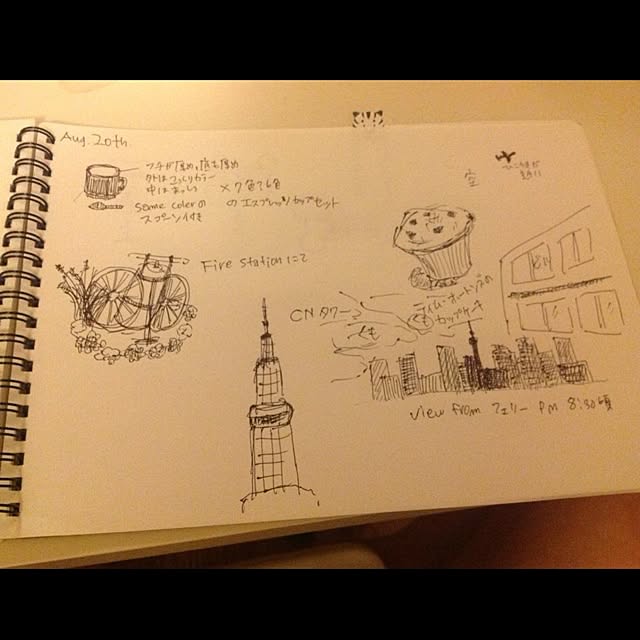 Aug. 20th
フチが厚め。底も厚め
外はこっくりカラー
中はまっしろ
× 7色で6色
some colorの
のエスプレッソカップセット
スプーン付き
空
ひこうきが
Fire stationにて
CNタワー
ティム・ホートンズの
カップケーキ
view from フェリー PM 8:30頃